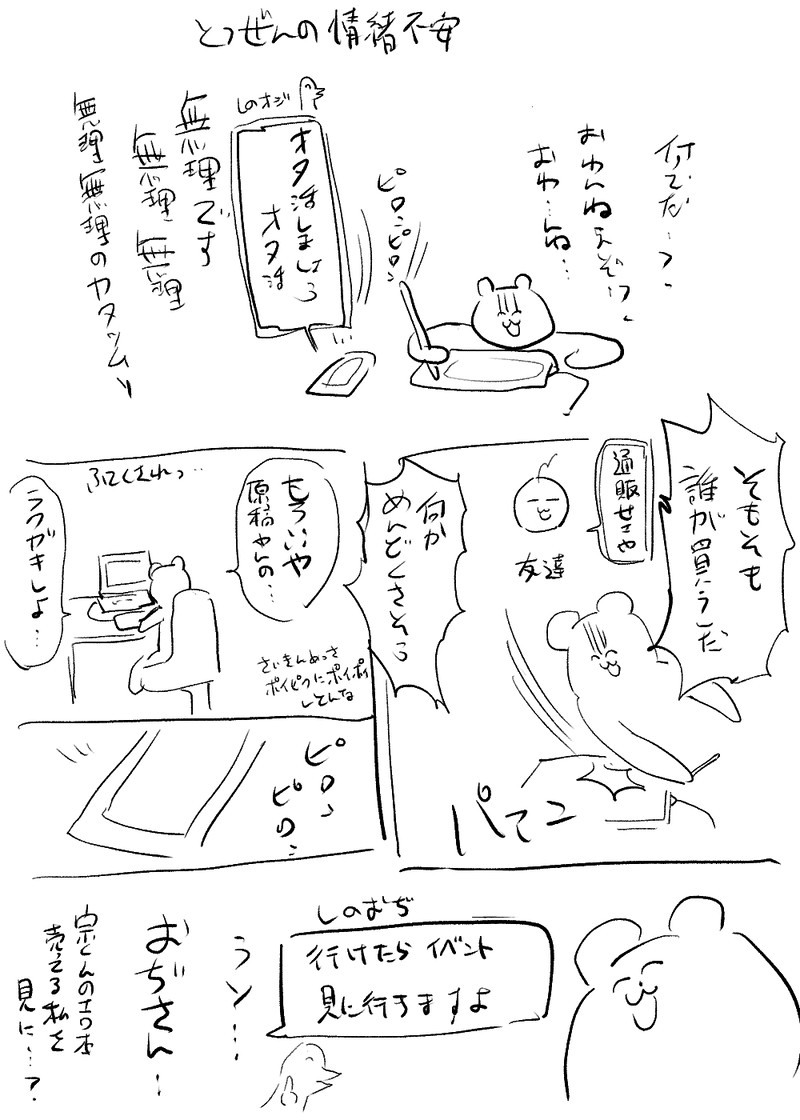 とつぜんの情緒不安
何でだ…？、
おわんねえぞ…？、
おわ…んね…
ピロンピロン
しのオジ
オタ活しましょう
オタ活
無理です
無理無理
無理無理のカタツムリ
そもそも
誰が買うんだ
通販せぇや
友達
何か
めんどくさそう
パァン
もういや
原稿やんの…
ふてくされっ…
ラクガキしよ…
さいきんめっさ
ポイピクにポイポイ
してんな
ピロン
ピロン
しのおぢ
行けたらイベント
見に行きますよ
うン…
おぢさん…
宗とんのエロ本
売てる私を
見に…？